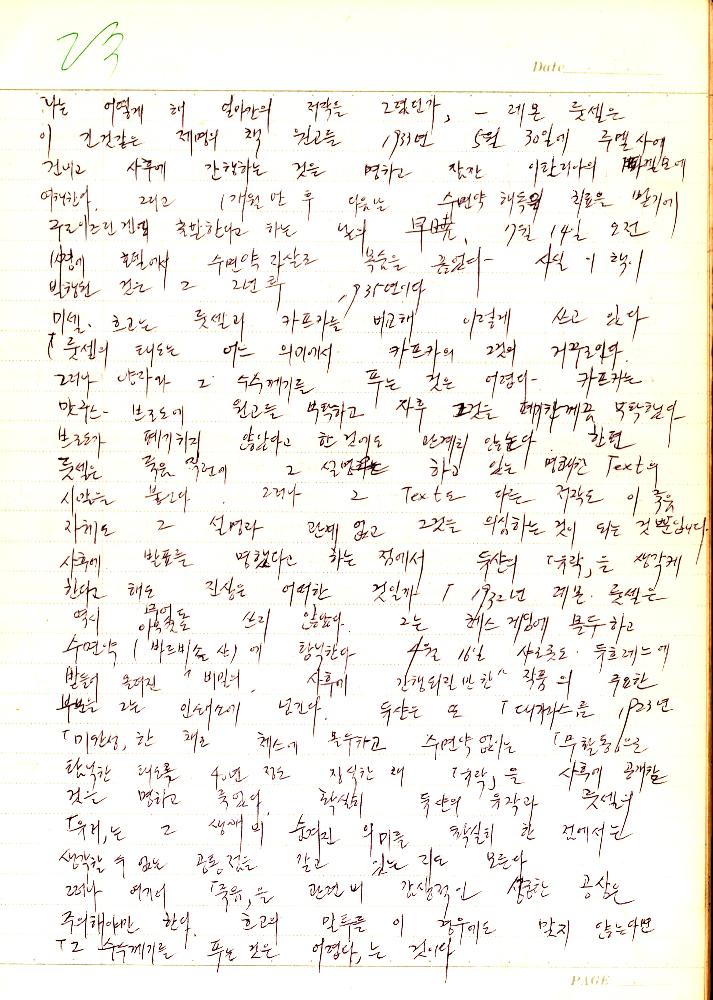 23
Date
나는 어떻게 해 몇 가지의 저작을 그렸던가, — 레몬 룻셀은
이 건 같은 제명의 책 원고를 1933년 5월 30일에 루멜사에
건네고 사후에 간행하는 것은 명하고 잠깐 이탈리아의
여행한다. 그리고 1개월 반 후 다음은 수면약 해독의 치료을 받기에
출발한다고 하는 날의 早曉, 7월 14일 오전
10경에 호텔에서 수면약 자살로 목숨을 끊었다— 사실 이 책이
발행된 것은 그 2년 후 1935년이다
미셀. 흐고는 룻셀과 카프카를 비교해 이렇게 쓰고 있다
「룻셀의 태도는 어느 의미에서 카프카의 그것의 거꾸로이다.
그러나 양자가 그 수수께기를 푸는 것은 어렵다— 카프카는
막구스— 브로드에 원고를 부탁하고 자루 그것을 폐기할께끔 부탁했다
브로드가 폐기하지 않았다고 한 것에도 관계히 않는다 한편
룻셀은 죽음 직전에 그 설명 하고 있는 명쾌한 Text의
시작을 붙인다. 그러나 그 Text도 다른 저작도 이 죽음
자체도 그 설명과 관계 없고 그것을 의심하는 것이 되는 것 뿐입니다.
사후에 발표를 명했다고 하는 점에서 듀샨의 「유락」을 생각케
한다고 해도 진상은 어떠한 것일까 「1932년 레몬. 룻셀은
역시 무엇도 쓰러 않았다. 그는 체스 게임에 몰두하고
수면약 ( 바드비솔 산) 에 탐닉한다 4월 16일 샤로롯도. 듀흐레느에
받들어 올려진 " 비밀의 사후에 간행되길 만한" 작품의 주요한
부분을 그는 인쇄소에 넘긴다. 듀샨은 또 「대가라스를 1923년
「미완성, 한 채로 체스에 몰두하고 수면약 없이는 「무활동」으로
탐닉한 태도를 40년 정도 지속한 데 「유락」을 사후에 공개할
것을 명하고 죽었다. 확실히 듀샨의 유작과 룻셀의
「유리」는 그 생애의 숨겨진 의미를 확실히 한 건에서는
생각할 수 없는 공통점을 갖고 있는 지도 모른다
그러나 여기서 「죽음」을 관련비 감상적인 공상은
주의해야만 한다. 흐고의 말투를 이 경우에도 맞지 않는다면
「그 수수께기를 푸는 것은 어렵다」는 것이다
PAGE